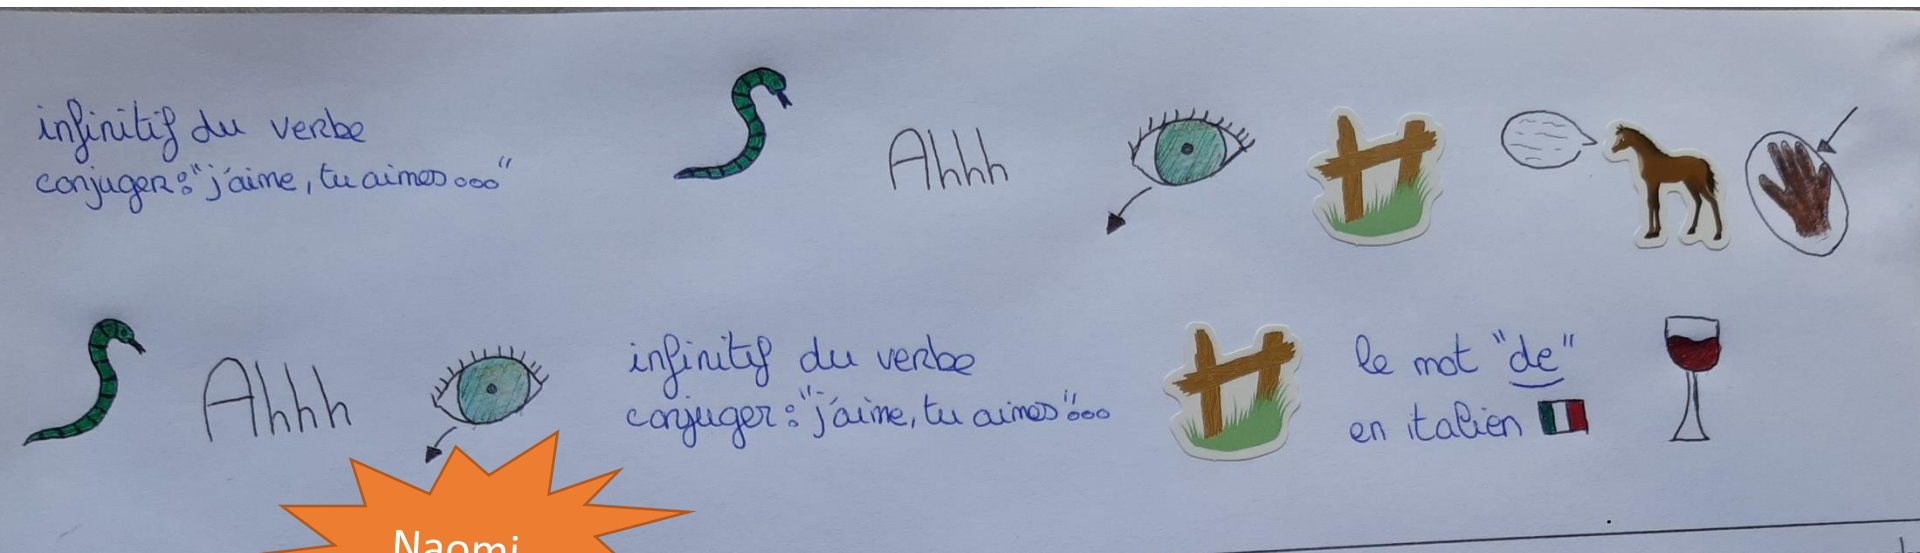 infinitif du verbe
conjuger : "j'aime, tu aimes ooo"
Ahhh
Ahhh
infinitif du verbe
conjuger : "j'aime, tu aimes" ooo
le mot "de"
en italien
Naomi